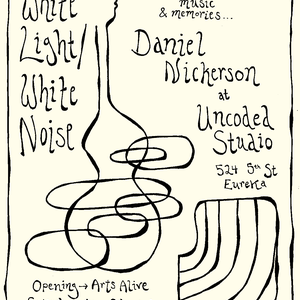 White
Light/
White
Noise
music
& memories...
Daniel
Nickerson
at
Uncoded
Studio
524 5th St
Eureka
Opening → Arts Alive